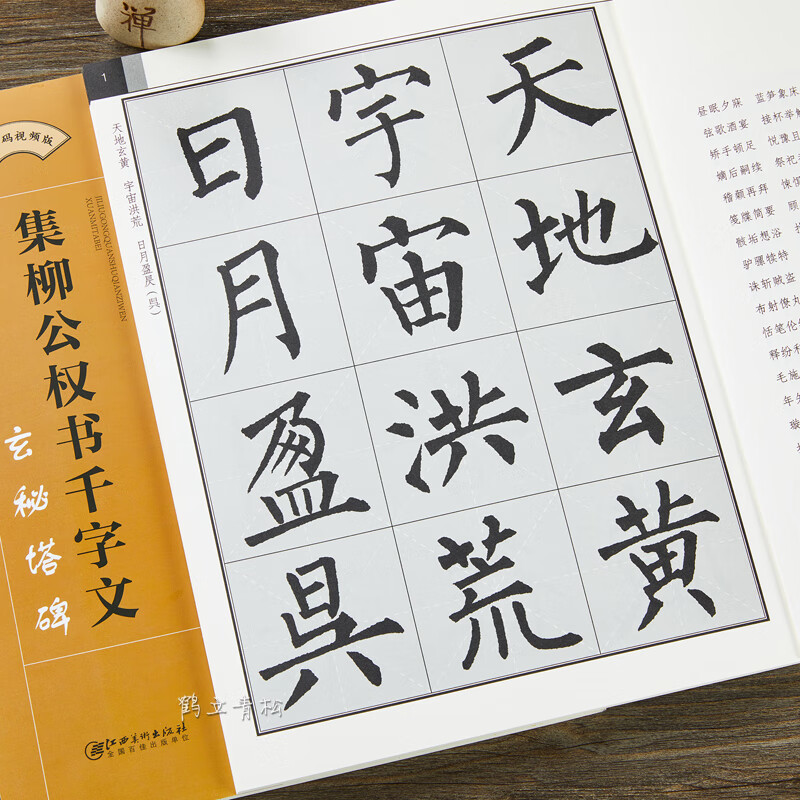 禪
码视频版
JILIUGONGQUANSHUQIANZIWEN
XUANMITABEI
集柳公权书千字文
玄秘塔碑
江西美术出版社
全国百佳出版单位
1
天地玄黄 宇宙洪荒 日月盈昃
天地玄黄
宇宙洪荒
日月盈
昼眠夕寐 蓝笋象床
弦歌酒宴 接杯举
矫手顿足 悦豫且
嫡后嗣续 祭祀
稽颡再拜 悚
笺牒简要 顾
骸垢想浴
驴骡犊特
诛斩贼盗
布射僚丸
恬笔伦
释纷利
毛施
年矢
璇
鹤立青松